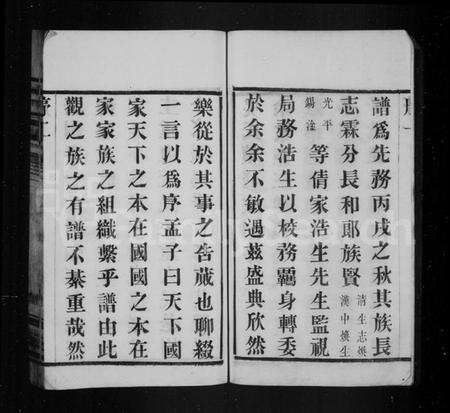 譜爲先務丙戌之秋其族長
志霖分長和郎族賢清生志煥漢中煥生
光平錫淦等倩家浩生先生監視
局務浩生以校務羈身轉委
於余余不敏遇茲盛典欣然
樂從於其事之告蕆也聊綴
一言以爲序孟子曰天下國
家天下之本在國國之本在
家家族之組織繫乎譜由此
觀之族之有譜不綦重哉然
序二